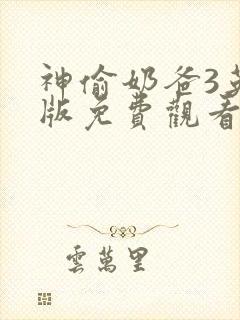 神偷奶爸3英
版免費觀看
雲萬里